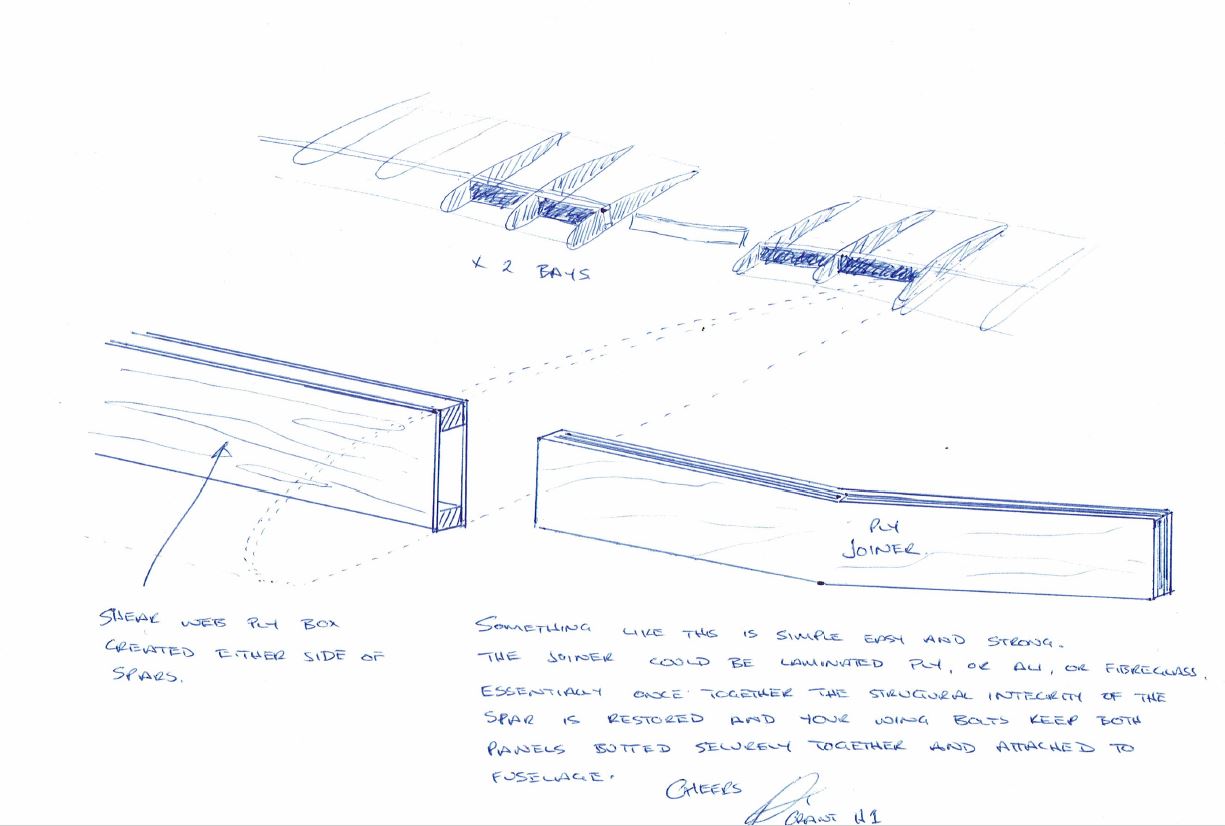 X 2 BAYS
PLY
JOINER.
SHEAR WEB PLY BOX
CREATED EITHER SIDE OF
SPARS.
SOMETHING LIKE THIS IS SIMPLE EASY AND STRONG.
THE JOINER COULD BE LAMINATED PLY, OR ALI, OR FIBREGLASS.
ESSENTIALLY ONCE TOGETHER THE STRUCTURAL INTEGRITY OF THE
SPAR IS RESTORED AND YOUR WING BOLTS KEEP BOTH
PANELS BUTTED SECURELY TOGETHER AND ATTACHED TO
FUSELAGE.
CHEERS
GRANT H1